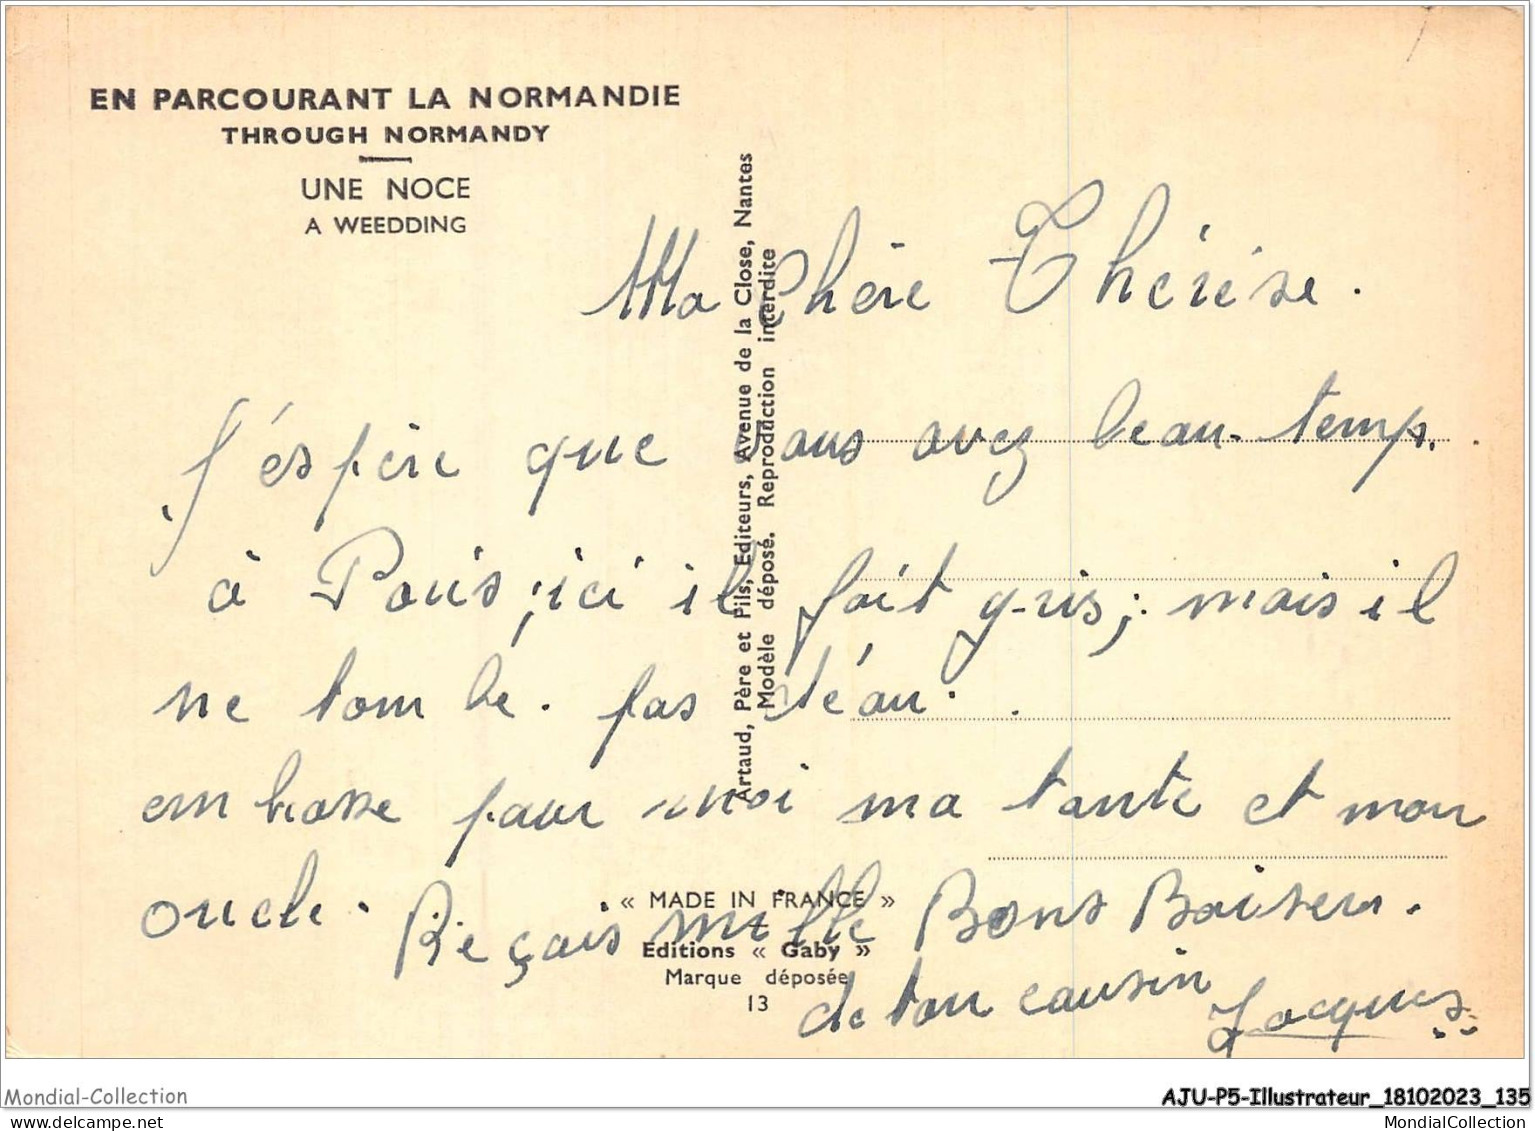 EN PARCOURANT LA NORMANDIE
THROUGH NORMANDY
UNE NOCE
A WEEDDING
Artaud, Père et Fils, Editeurs, Avenue de la Close, Nantes
Modèle déposé. Reproduction interdite
Ma Chère Thérèse.
J'éspère que vous avez beau temp.
à Paris; ici il fait gris; mais il
ne tombe. pas d'éau.
embrasse pour moi ma tante et mon
oncle. Reçais mille Bons Baisers.
de ton cousin Jacques
« MADE IN FRANCE »
Editions « Gaby »
Marque déposée
13
Mondial-Collection
AJU-P5-Illustrateur_18102023_135
MondialCollection